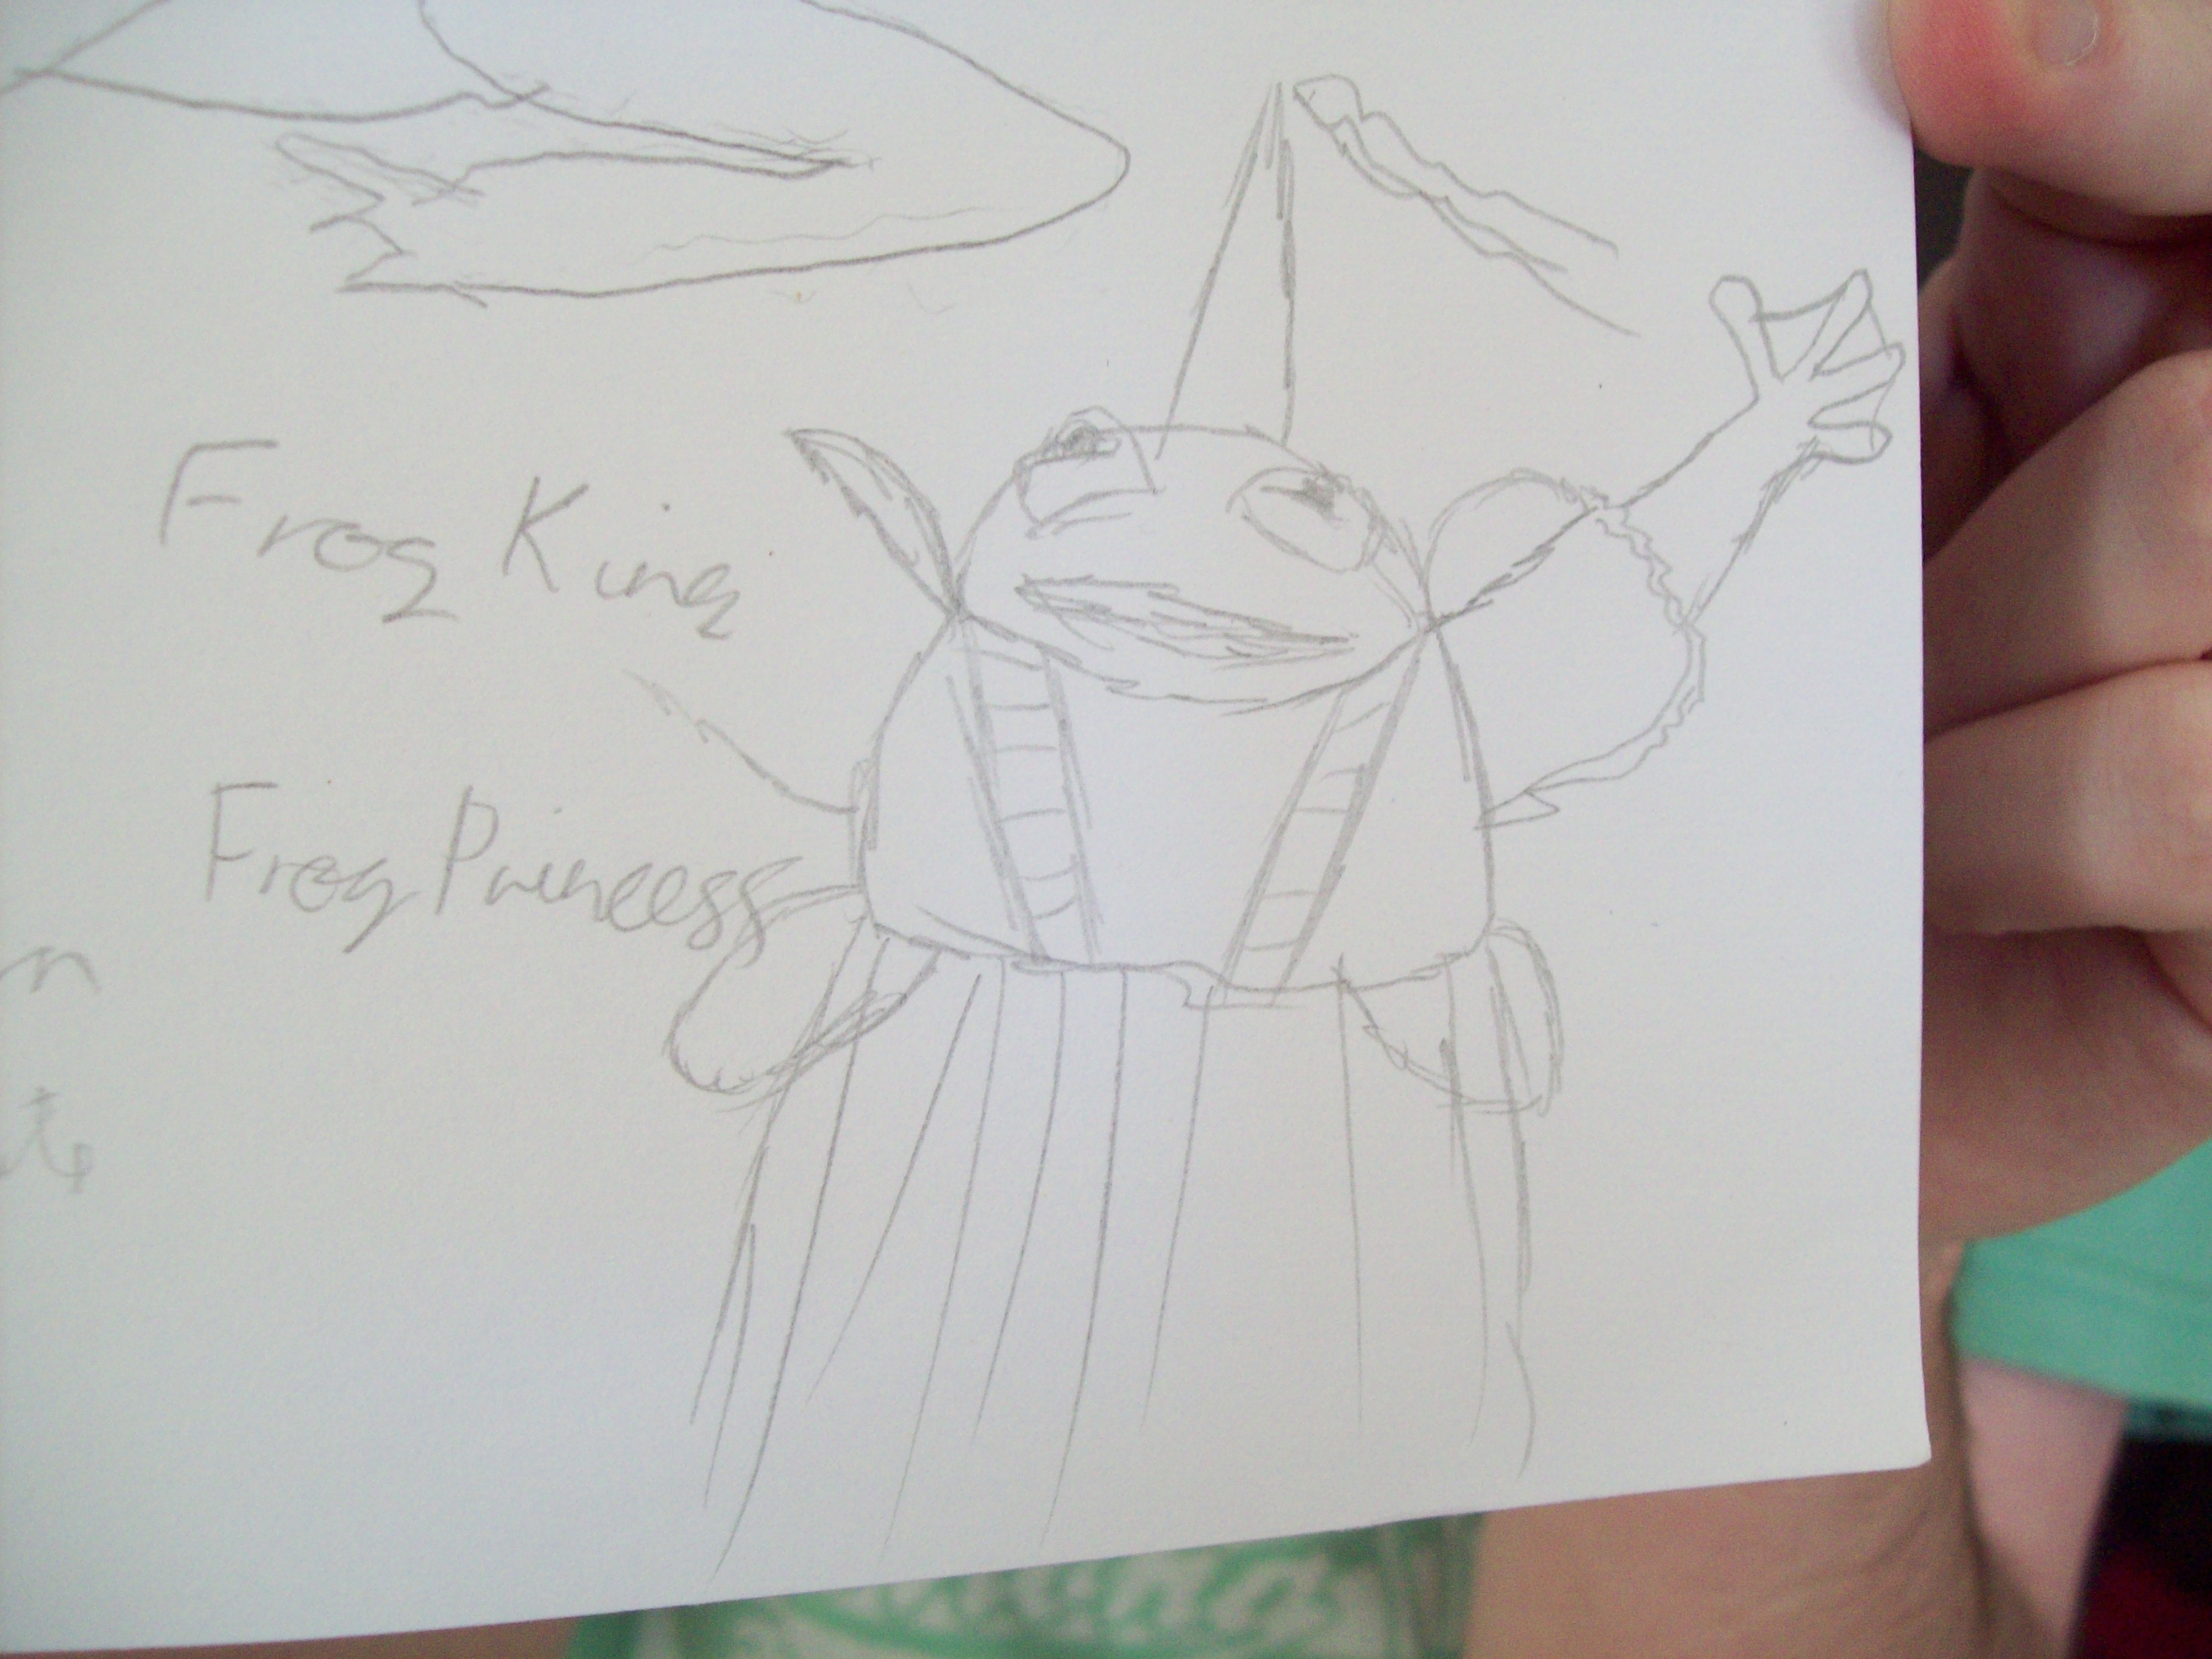 Frog King
Frog Princess
n
te